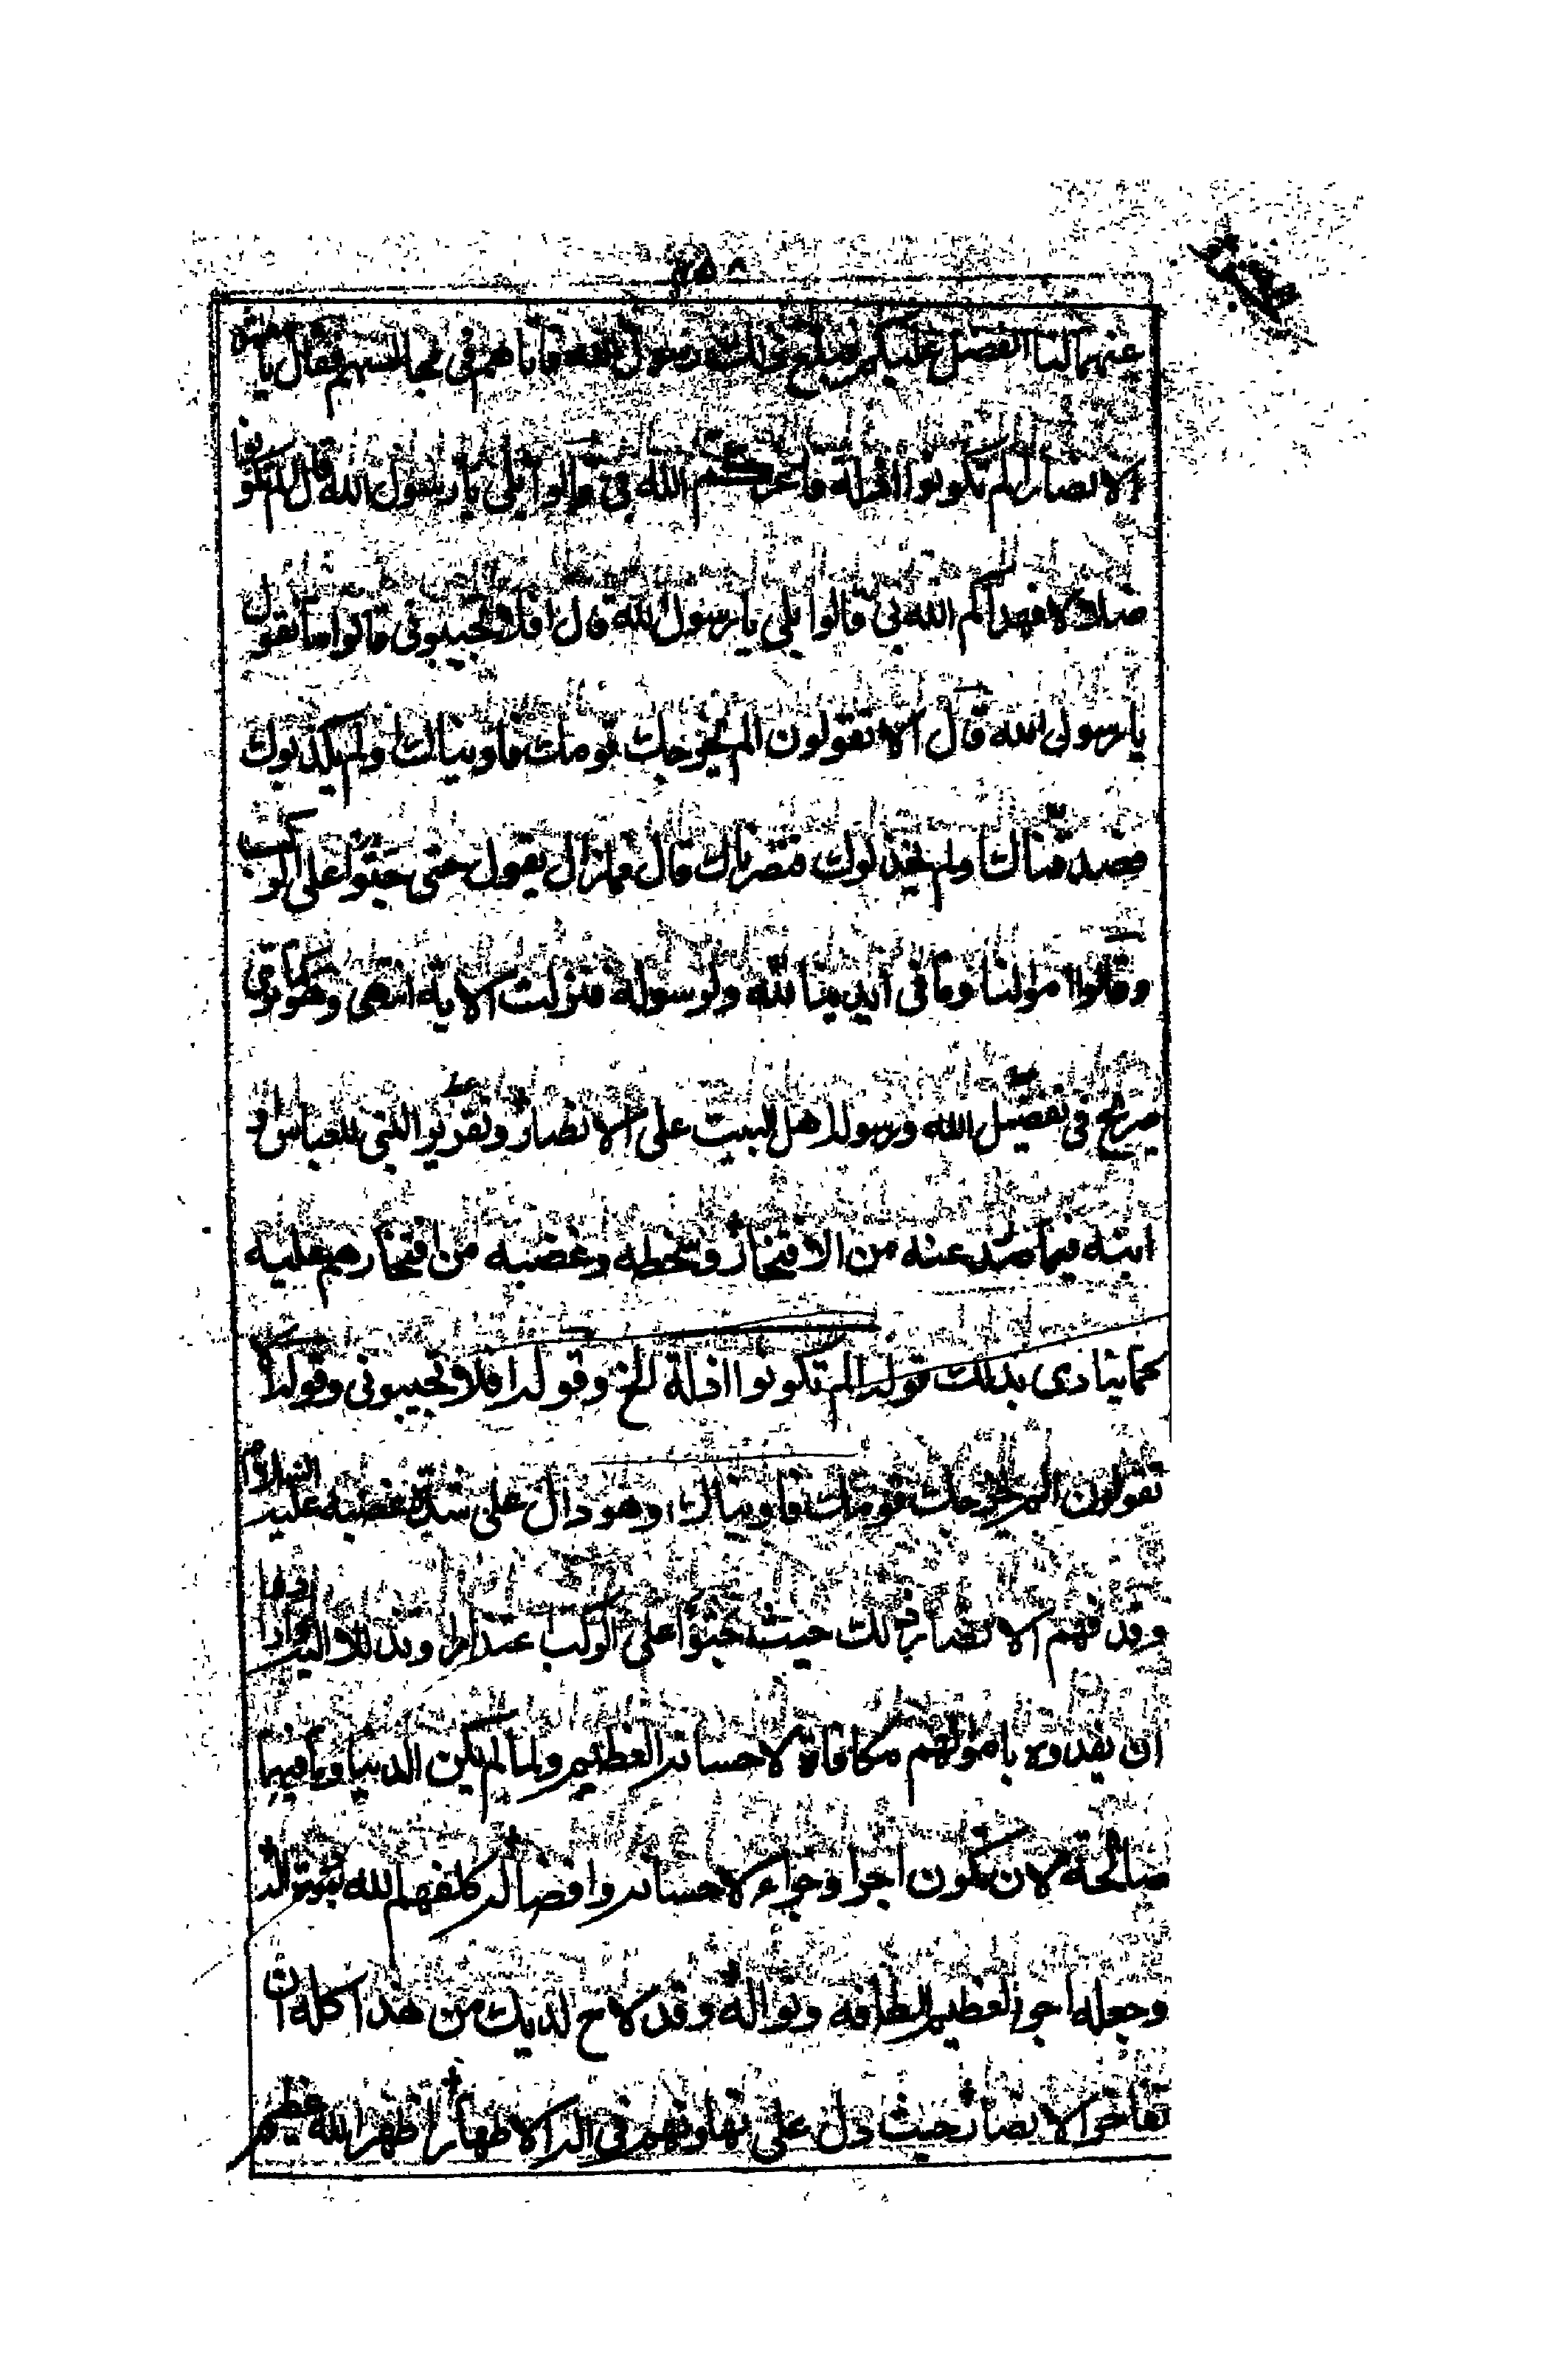 عنهما لنا الفضل عليكم فبلغ ذلك رسول الله فاتاهم في مجالسهم فقال يا معشر
الانصار الم تكونوا اذلة فاعزكم الله بي قالوا بلى يا رسول الله قال الم تكونوا
ضلالا فهداكم الله بي قالوا بلى يا رسول الله قال افلا تجيبوني قالوا ما نقول
يا رسول الله قال الا تقولون الم يخرجك قومك فاويناك او لم يكذبوك
فصدقناك او لم يخذلوك فنصرناك قال فمازال يقول حتى جثوا على الركب
وقالوا اموالنا وما في ايدينا لله ولرسوله فنزلت الاية انتهى وهو كما ترى
صريح في تفضيل الله ورسوله اهل البيت على الانصار وتقرير النبي للعباس او
ابنه فيما صدر عنه من الافتخار وسخطه وغضبه من افتخارهم عليه
كما ينادي بذلك قوله الم تكونوا اذلة الخ وقوله افلا تجيبوني وقوله الا
تقولون الم يخرجك قومك فاويناك اه وهو دال على شدة غضبه عليه السلام
وقد فهم الانصار ذلك حيث جثوا على الركب اعتذارا وتذللا اليه وارادوا
ان يفدوه باموالهم مكافاة لاحسانه العظيم ولما لم يكن الدنيا وما فيها
صالحة لان تكون اجرا وجزاء لاحسانه وافضاله كلفهم الله بمودة اله
وجعله اجر العظيم الطافه ونواله وقد لاح لديك من هذا كله ان
تفاخر الانصار حيث دل على تهاونهم في اله الاطهار اظهر الله عظيم